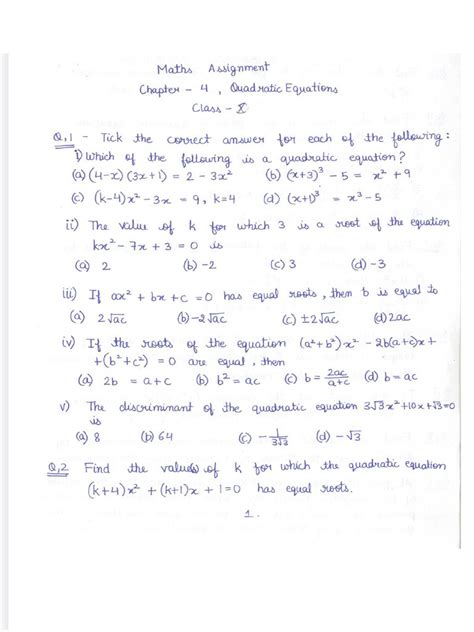 Maths Assignment
Chapter - 4 , Quadratic Equations
Class - X
Q.1 - Tick the correct answer for each of the following :
i) Which of the following is a quadratic equation?
(a) (4-x) (3x+1) = 2 - 3x² (b) (x+3)³ - 5 = x² + 9
(c) (k-4)x² - 3x = 9, k=4 (d) (x+1)³ = x³ - 5
ii) The value of k for which 3 is a root of the equation
kx² - 7x + 3 = 0 is
(a) 2 (b) -2 (c) 3 (d) -3
iii) If ax² + bx + c = 0 has equal roots, then b is equal to
(a) 2√ac (b) -2√ac (c) ±2√ac (d) 2ac
iv) If the roots of the equation (a²+b²)x² - 2b(a+c)x +
+(b²+c²) = 0 are equal, then
(a) 2b = a+c (b) b² = ac (c) b = 2ac/a+c (d) b = ac
v) The discriminant of the quadratic equation 3√3x²+10x+√3=0
is
(a) 8 (b) 64 (c) -1/3√3 (d) -√3
Q.2 Find the value(s) of k for which the quadratic equation
(k+4)x² + (k+1)x + 1 = 0 has equal roots.
1.